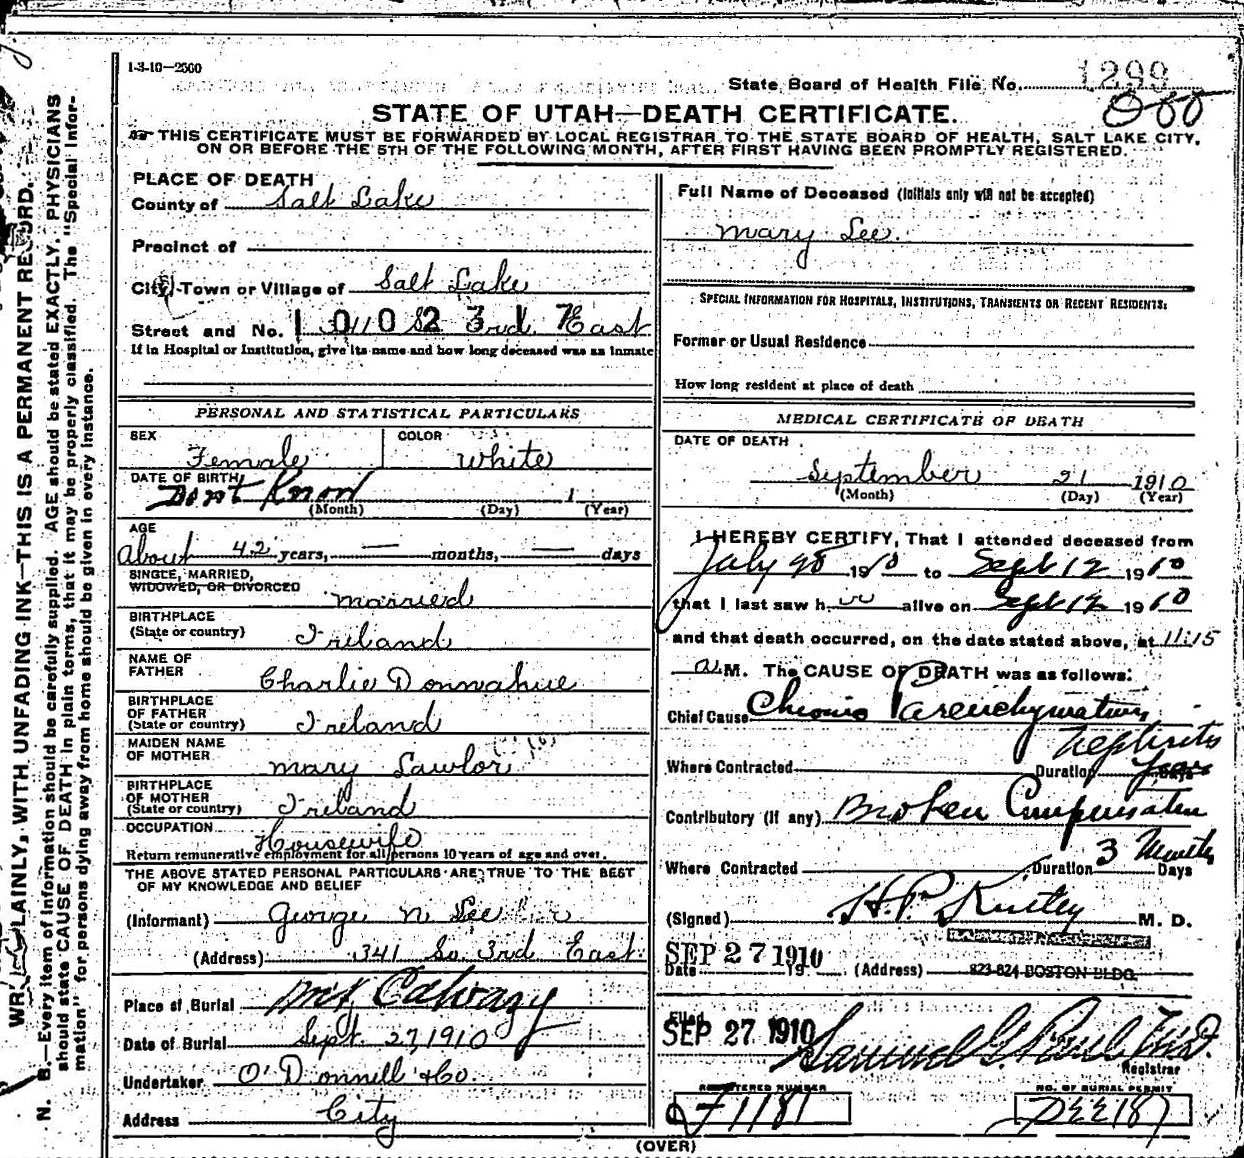 1-3-10—2500
State Board of Health File No. 1299
STATE OF UTAH—DEATH CERTIFICATE.
THIS CERTIFICATE MUST BE FORWARDED BY LOCAL REGISTRAR TO THE STATE BOARD OF HEALTH, SALT LAKE CITY,
ON OR BEFORE THE 5TH OF THE FOLLOWING MONTH, AFTER FIRST HAVING BEEN PROMPTLY REGISTERED.
WRITE PLAINLY, WITH UNFADING INK—THIS IS A PERMANENT RECORD.
N. B.—Every item of information should be carefully supplied. AGE should be stated EXACTLY. PHYSICIANS
should state CAUSE OF DEATH in plain terms, that it may be properly classified. The "Special Infor-
mation" for persons dying away from home should be given in every instance.
PLACE OF DEATH
County of Salt Lake
Precinct of
City, Town or Village of Salt Lake
Street and No. 3rd East
1002317
If in Hospital or Institution, give its name and how long deceased was an inmate
PERSONAL AND STATISTICAL PARTICULARS
SEX Female COLOR White
DATE OF BIRTH Dont Know 1
(Month) (Day) (Year)
AGE
About 42 years, — months, — days
SINGLE, MARRIED,
WIDOWED, OR DIVORCED Married
BIRTHPLACE
(State or country) Ireland
NAME OF
FATHER Charlie Donnahue
BIRTHPLACE
OF FATHER
(State or country) Ireland
MAIDEN NAME
OF MOTHER Mary Lawlor
BIRTHPLACE
OF MOTHER
(State or country) Ireland
OCCUPATION Housewife
Return remunerative employment for all persons 10 years of age and over.
THE ABOVE STATED PERSONAL PARTICULARS ARE TRUE TO THE BEST
OF MY KNOWLEDGE AND BELIEF
(Informant) George N Lee
(Address) 341 So. 3rd East
Place of Burial Mt Calvary
Date of Burial Sept. 27, 1910
Undertaker O'Donnell & Co.
Address City
Full Name of Deceased (Initials only will not be accepted)
Mary Lee.
SPECIAL INFORMATION FOR HOSPITALS, INSTITUTIONS, TRANSIENTS OR RECENT RESIDENTS:
Former or Usual Residence
How long resident at place of death
MEDICAL CERTIFICATE OF DEATH
DATE OF DEATH
September 21 1910
(Month) (Day) (Year)
I HEREBY CERTIFY, That I attended deceased from
July 28 1910 to Sept 12 1910
that I last saw her alive on Sept 12 1910
and that death occurred, on the date stated above, at 11:15
a M. The CAUSE OF DEATH was as follows:
Chief Cause Chronic Parenchymatous
Nephritis
Where Contracted Duration Years Days
Contributory (if any) Broken Compensation
Where Contracted Duration 3 Months Days
(Signed) H.P. Kirtley M. D.
SEP 27 1910
Date 19 (Address) 823-824 BOSTON BLDG.
Filed
SEP 27 1910 Samuel G. Paul M.D.
Registrar
REGISTERED NUMBER NO. OF BURIAL PERMIT
F1181
(OVER)